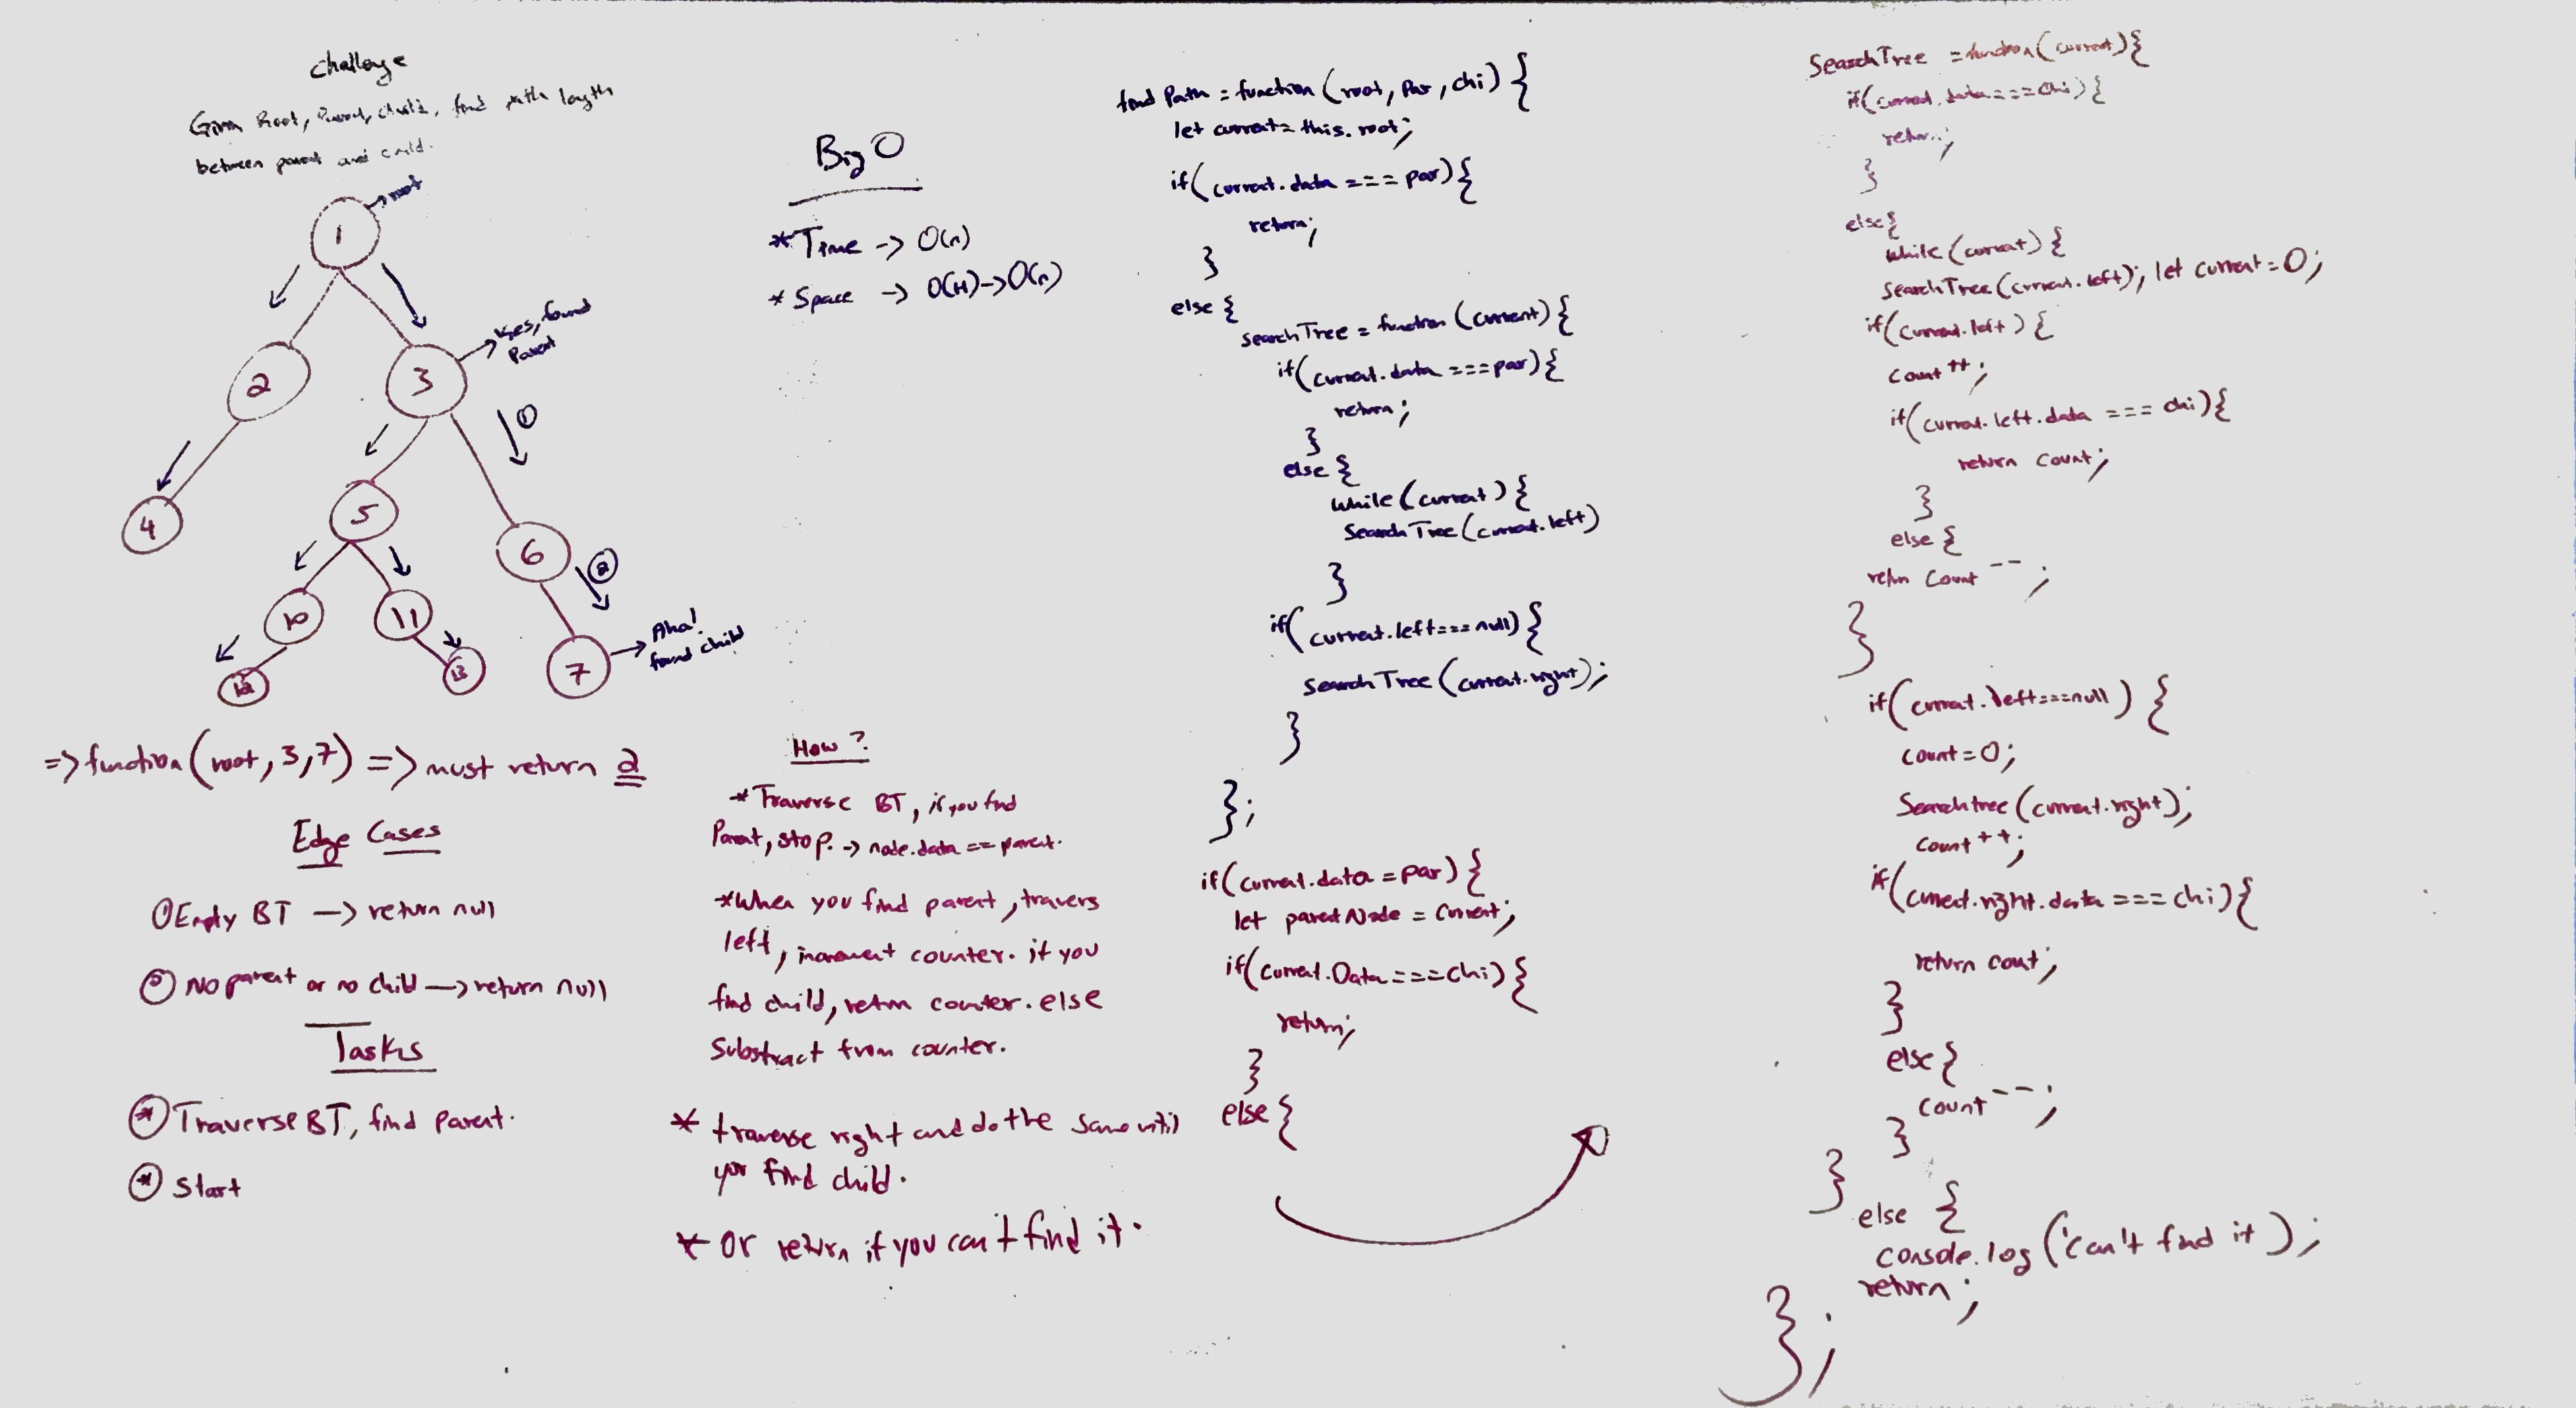 Challenge
Given Root, Parent, child, find path length
between parent and child.
1
→ root
2
3
→ Yes, found
Parent
①
4
5
6
②
10
11
12
13
7
→ Aha!
found child
=> function(root, 3, 7) => must return 2
Edge Cases
① Empty BT -> return null
② No parent or no child -> return null
Tasks
* Traverse BT, find Parent.
* Start
Big O
* Time -> O(n)
* Space -> O(H) -> O(n)
How?
* Traverse BT, if you find
Parent, stop. -> node.data == parent.
* When you find parent, travers
left, increment counter. if you
find child, return counter. else
Substract from counter.
* traverse right and do the same until
you find child.
* Or return if you can't find it.
find Path = function (root, Par, chi) {
let current = this.root;
if(current.data === par){
return;
}
else {
searchTree = function (current) {
if(current.data === par){
return;
}
else {
while (current) {
SearchTree(current.left)
}
if(current.left===null){
searchTree(current.right);
}
};
if(current.data = par) {
let parentNode = current;
if(current.Data === chi) {
return;
}
else {
SearchTree = function(current){
if(current.data === chi){
return;
}
else{
while (current) {
SearchTree(current.left); let current = 0;
if(current.left) {
count ++;
if(current.left.data === chi){
return count;
}
else {
retun count --;
}
if(current.left===null) {
count = 0;
Searchtree(current.right);
count ++;
if(current.right.data === chi){
return count;
}
else {
count --;
}
}
else {
console.log('can't find it);
return;
};